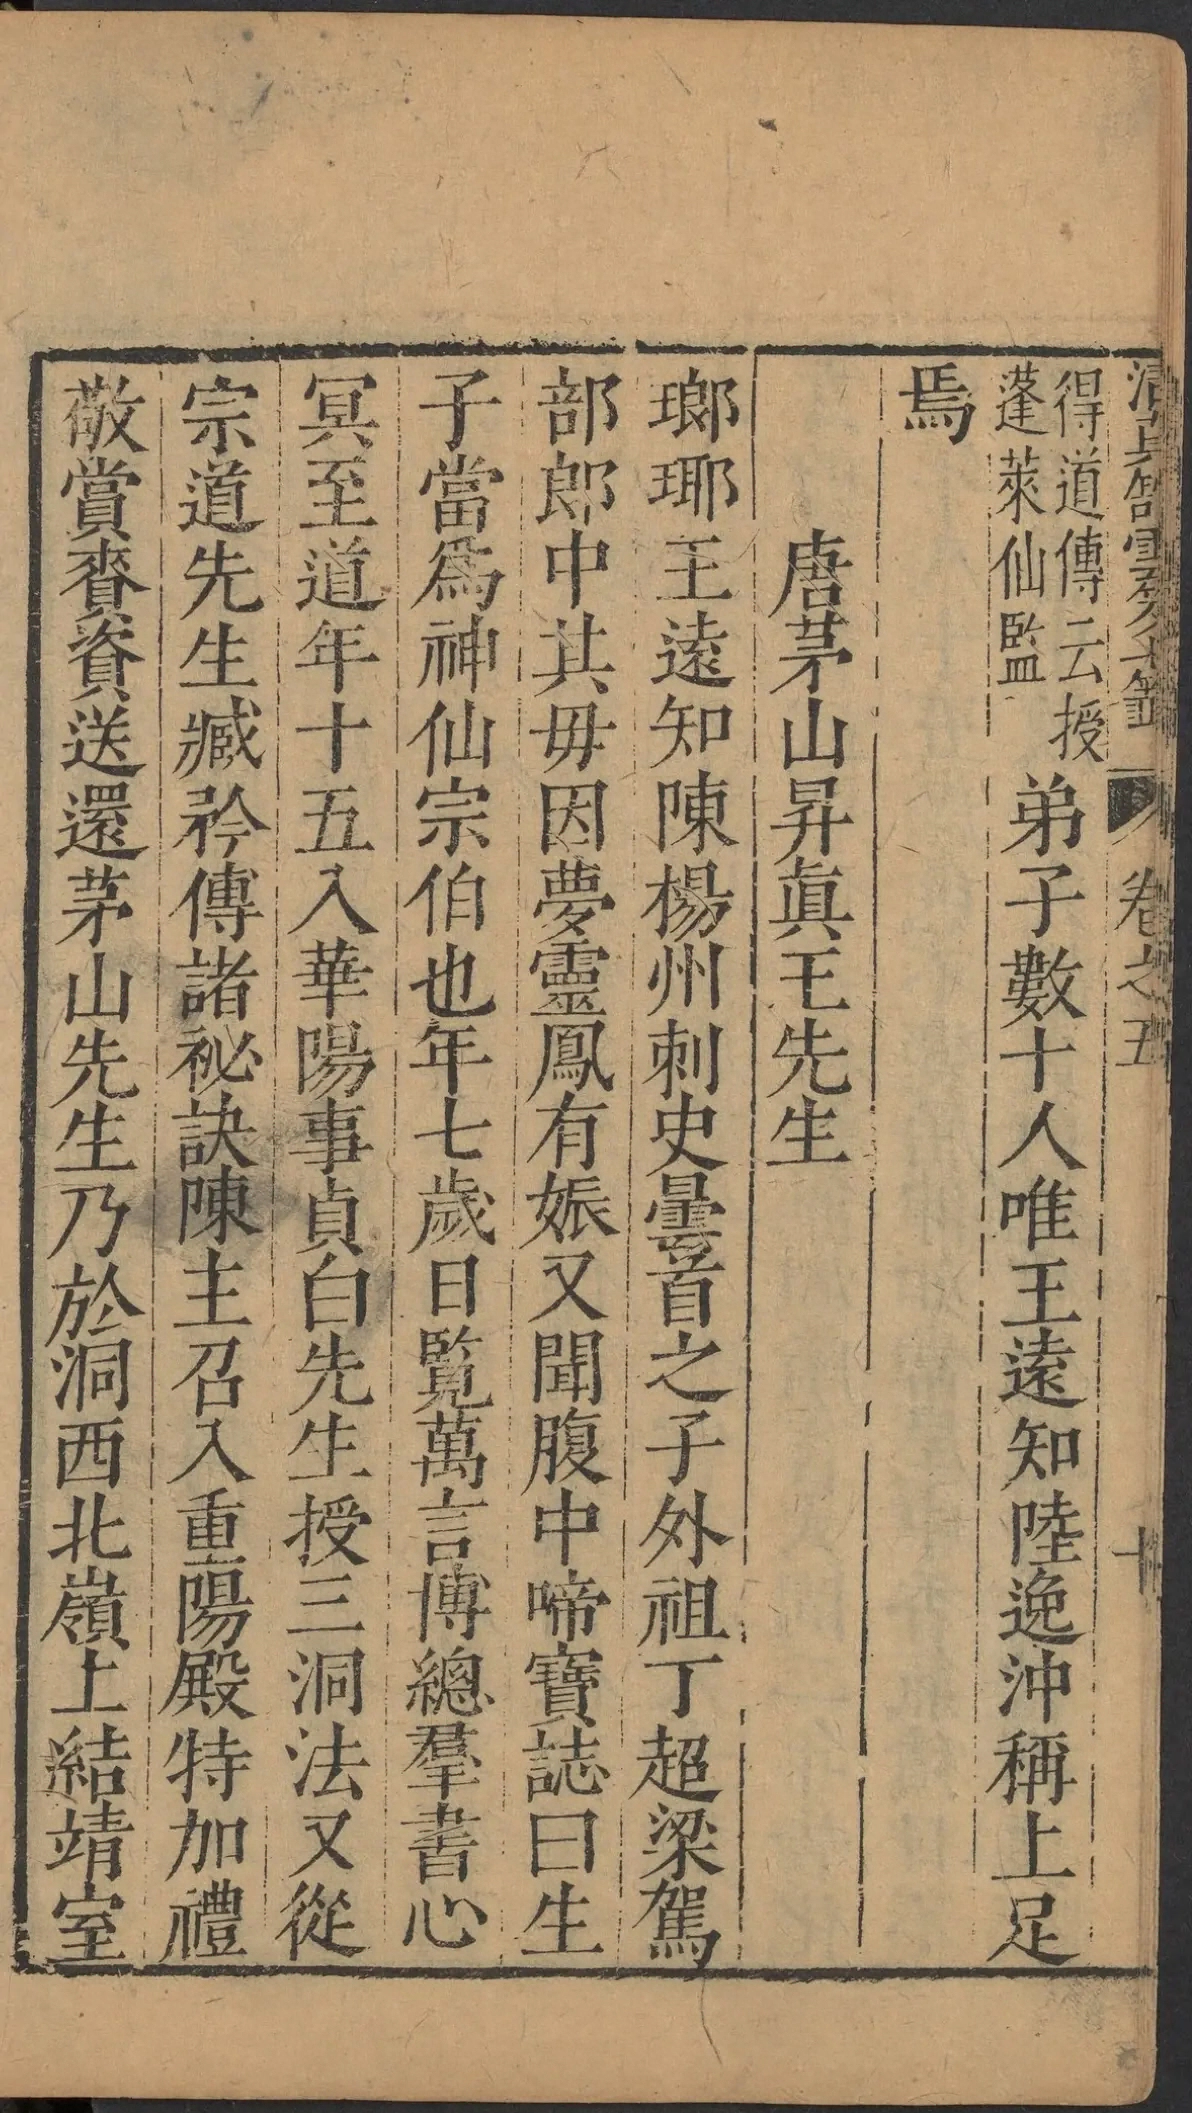 清眞 雲笈七籤 卷之五 十
得道傳云授
蓬萊仙監
弟子數十人唯王遠知陸逸沖稱上足
焉
唐茅山昇眞王先生
瑯琊王遠知陳楊州刺史曇首之子外祖丁超梁駕
部郎中其毋因夢靈鳳有娠又聞腹中啼寶誌曰生
子當爲神仙宗伯也年七歲日覽萬言博總羣書心
冥至道年十五入華陽事貞白先生授三洞法又從
宗道先生臧矜傳諸祕訣陳主召入重陽殿特加禮
敬賞賚資送還茅山先生乃於洞西北嶺上結靖室